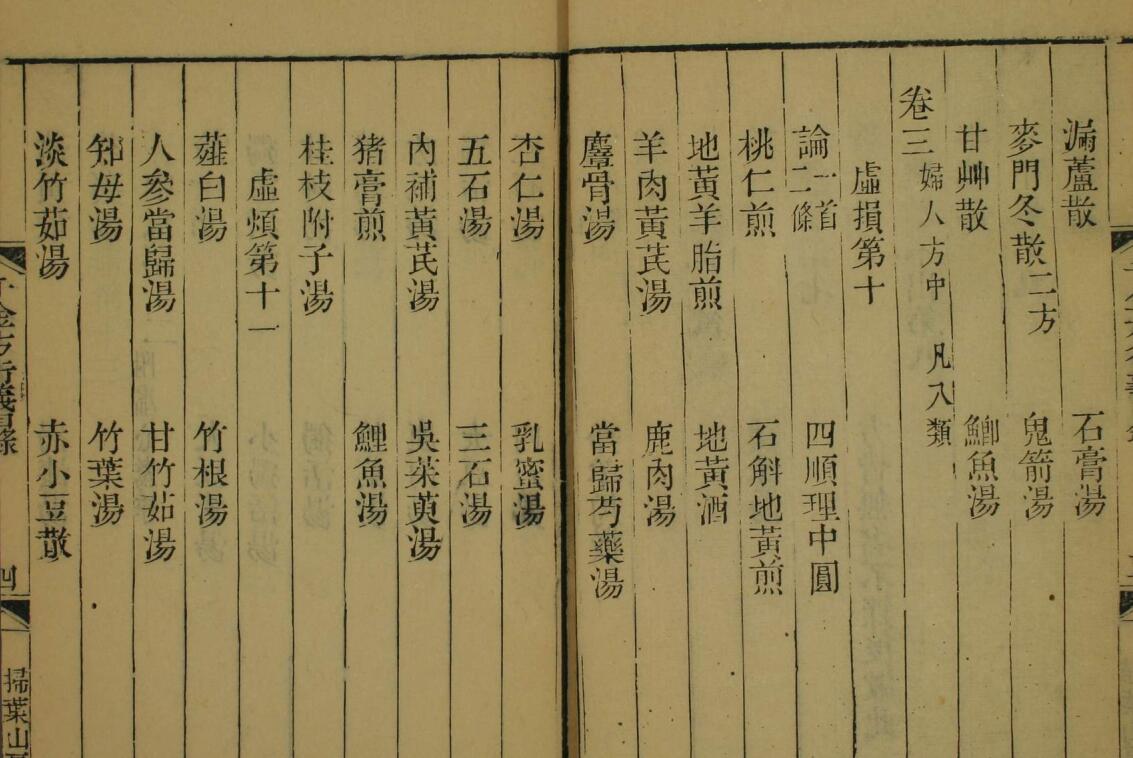 漏蘆散 石膏湯
麥門冬散二方 鬼箭湯
甘艸散 鯽魚湯
卷三 婦人方中 凡八類
虛損第十
論一首二條 四順理中圓
桃仁煎 石斛地黃煎
地黃羊脂煎 地黃酒
羊肉黃芪湯 鹿肉湯
麞骨湯 當歸芍藥湯
杏仁湯 乳蜜湯
五石湯 三石湯
內補黃芪湯 吳茱萸湯
猪膏煎 鯉魚湯
桂枝附子湯
虛煩第十一
薤白湯 竹根湯
人參當歸湯 甘竹茹湯
知母湯 竹葉湯
淡竹茹湯 赤小豆散
千金方衍義目錄 四 掃葉山